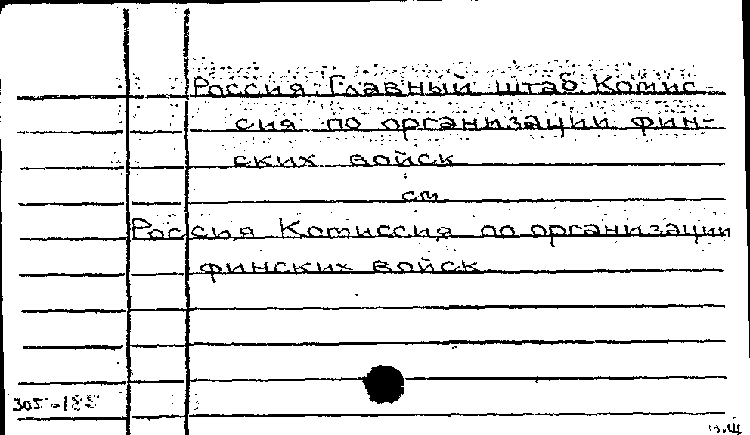 Россия. Главный штаб. Комис-
сия по организации фин-
ских войск
см
Россия Комиссия по организации
финских войск